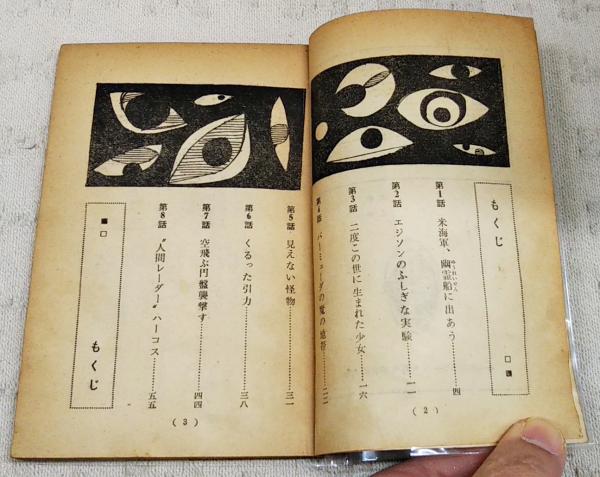 もくじ
第1話 米海軍、幽霊船に出あう………四
ゆうれいせん
第2話 エジソンのふしぎな実験………一一
第3話 二度この世に生まれた少女………一六
第4話 バーミューダの魔の地帯………二二
(2)
第5話 見えない怪物………三一
第6話 くるった引力………三八
第7話 空飛ぶ円盤襲撃す………四四
第8話 “人間レーダー”ハーコス………五五
もくじ
(3)